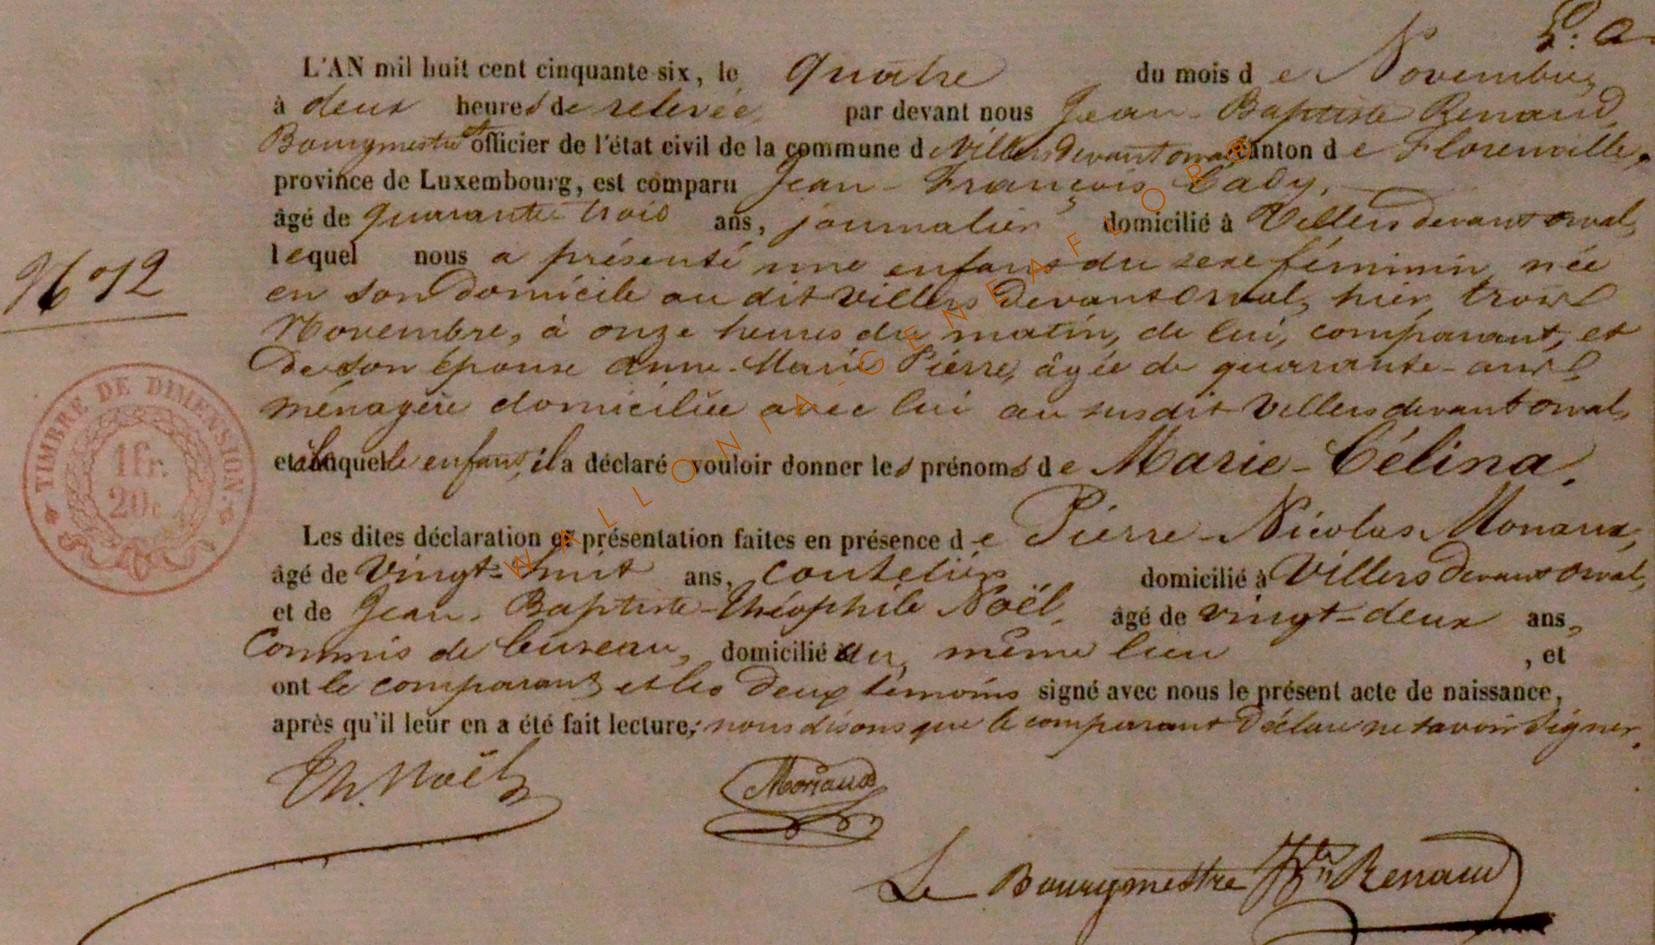 L'AN mil huit cent cinquante six, le quatre du mois de Novembre,
à deux heures de relevée, par devant nous Jean-Baptiste Renaud,
Bourgmestre et officier de l'état civil de la commune de Villers devant orval canton de Florenville,
province de Luxembourg, est comparu Jean-François Caby,
âgé de quarante trois ans, journalier domicilié à Villers devant orval,
lequel nous a présenté une enfant du sexe féminin, née
N° 12
en son domicile au dit villers devant Orval, hier, trois
Novembre, à onze heures du matin, de lui, comparant, et
de son épouse Anne-Marie Pierre, âgée de quarante-ans
ménagère domiciliée avec lui au susdit Villers devant orval,
et à laquelle enfant, il a déclaré vouloir donner les prénoms de Marie-Célina.
TIMBRE DE DIMENSION.
1fr.
20c
Les dites déclaration et présentation faites en présence de Pierre-Nicolas Monaux,
âgé de vingt-huit ans, coutelier domicilié à Villers devant orval,
et de Jean-Baptiste-Théophile Noël, âgé de vingt-deux ans,
Commis de bureau, domicilié au même lieu, et
ont le comparant et les deux témoins signé avec nous le présent acte de naissance,
après qu'il leur en a été fait lecture; nous disons que le comparant déclare ne savoir signer.
Th. Noël Monaux
Le Bourgmestre Renaud
WALLONIA-GENEAFLOR®